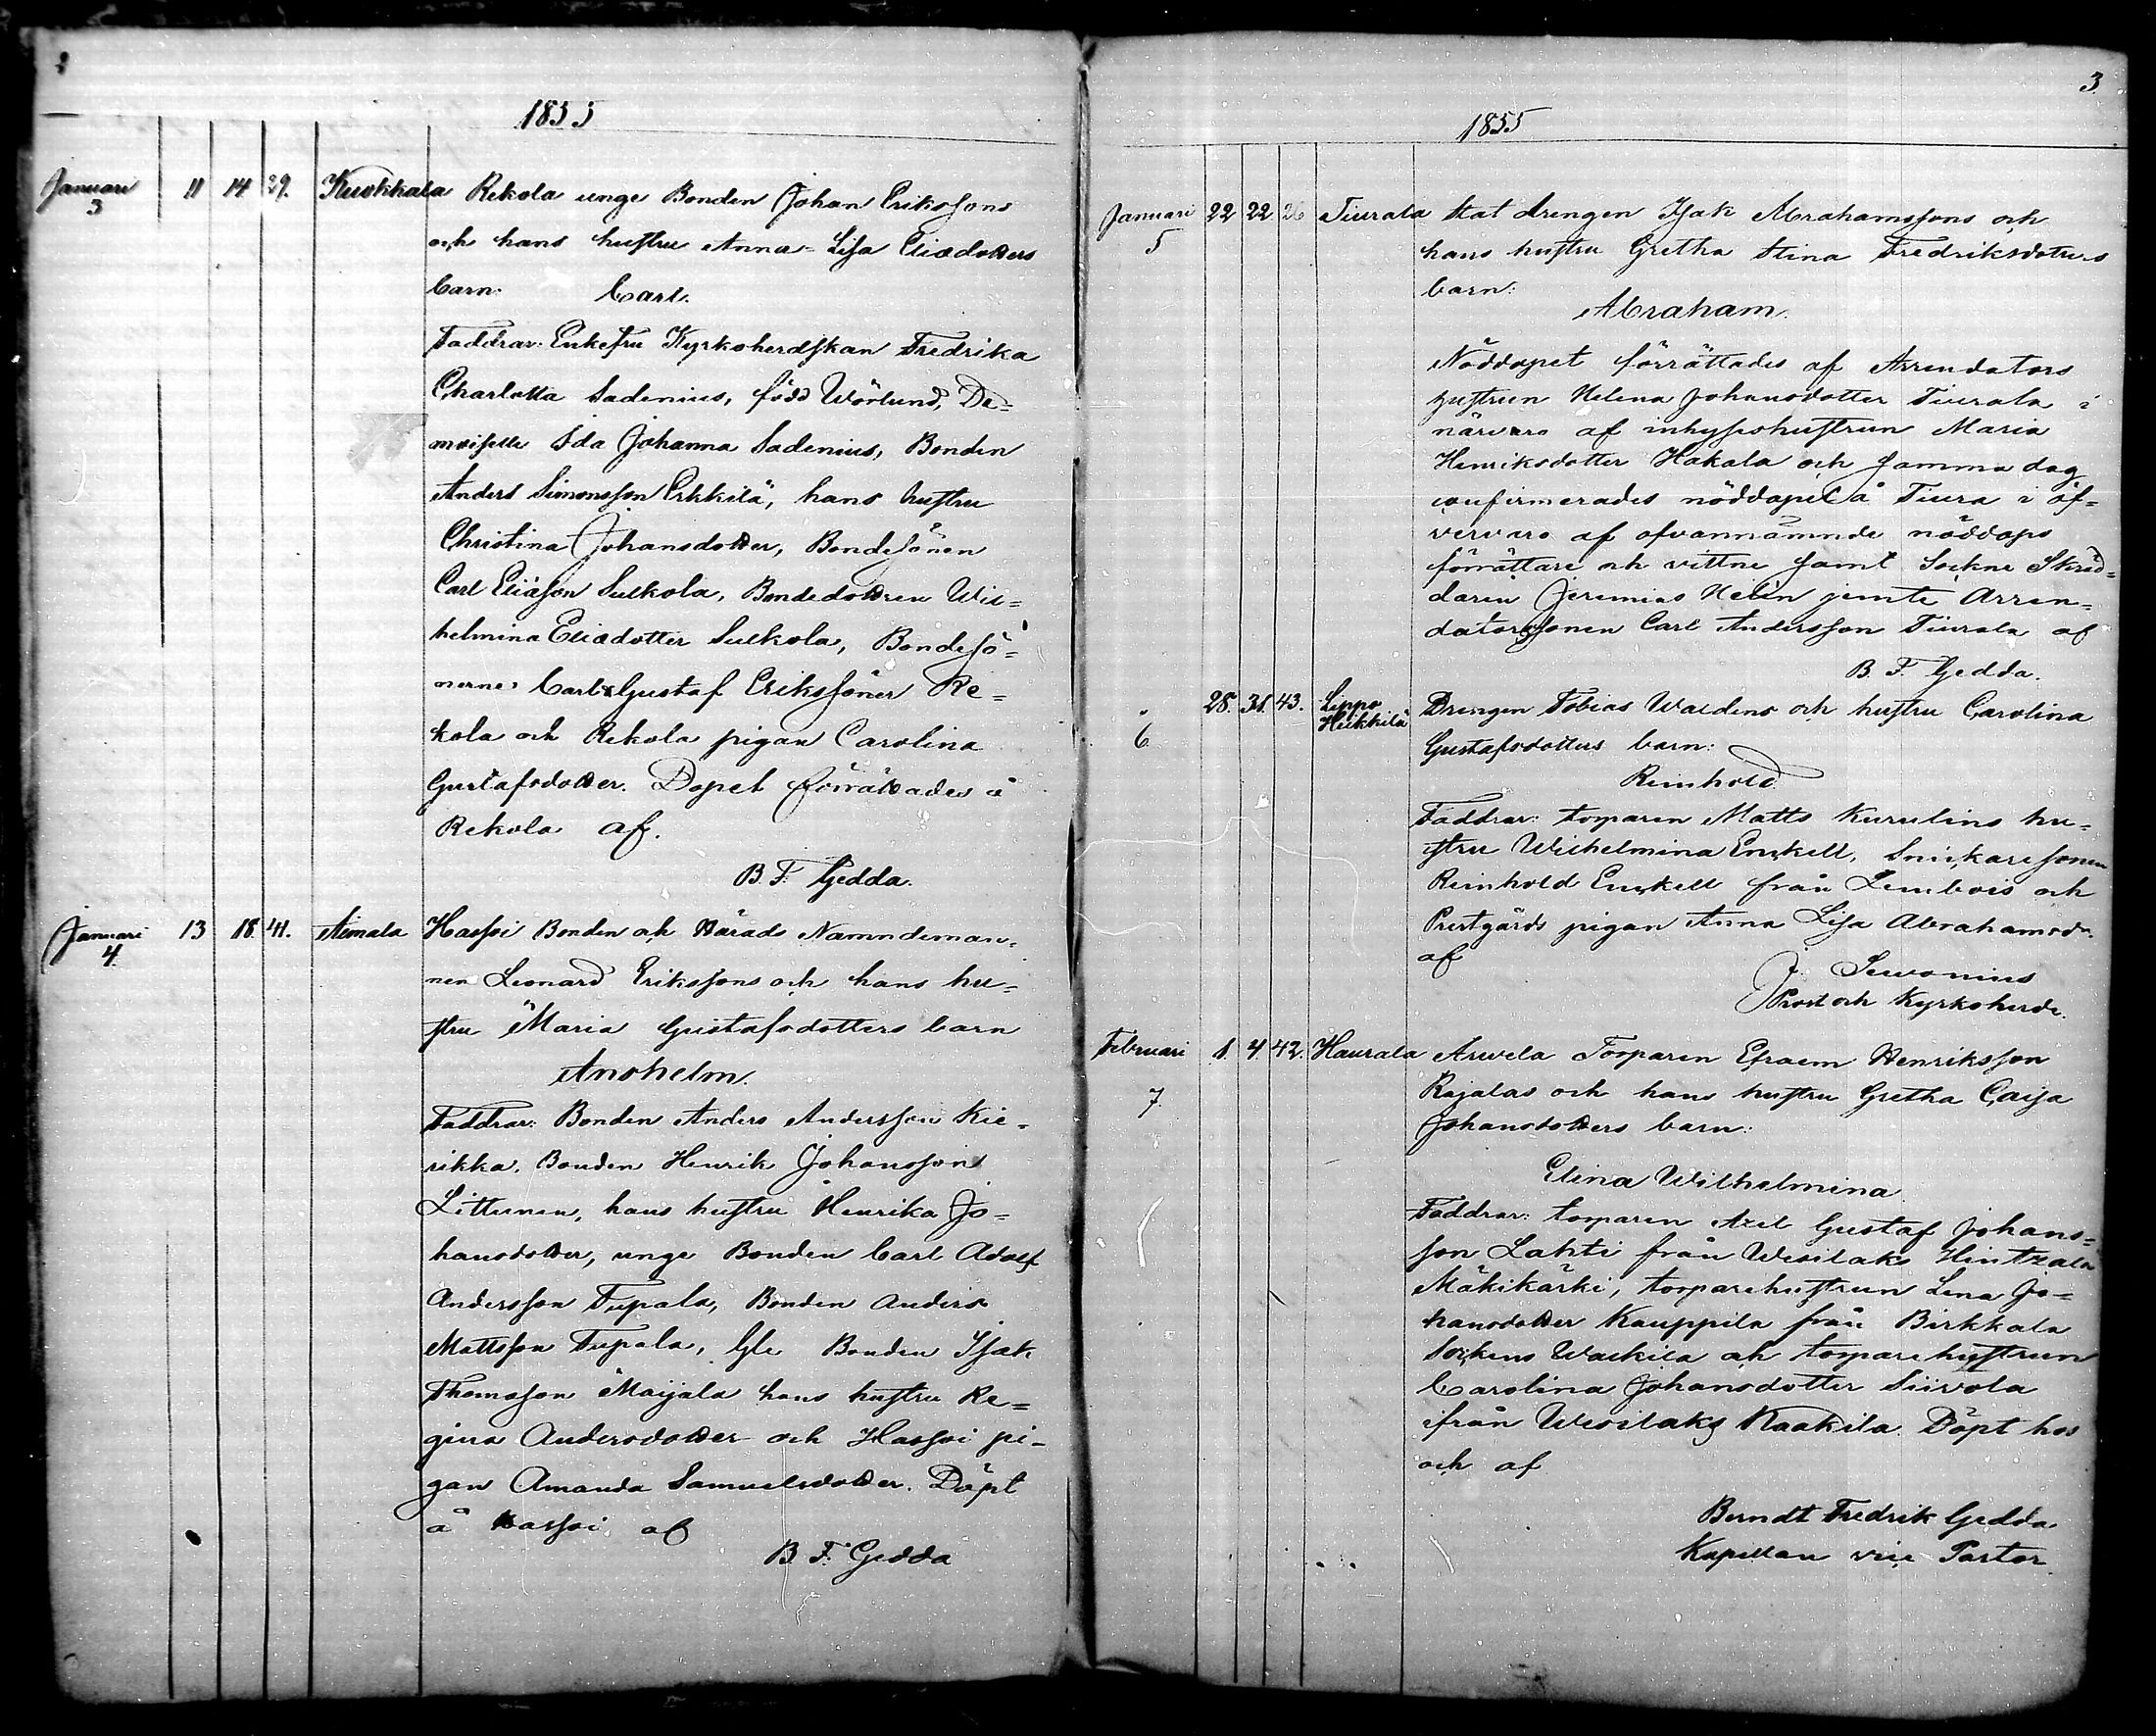 2
1855
Januari 11 14 29. Kuokkala Rekola unge Bonden Johan Erikssons
3
och hans hustru Anna Lisa Eliædotters
barn: Carl.
Faddrar: Enkefru Kyrkoherdskan Fredrika
Charlotta Sadenius, född Wörlund, De=
moiselle Ida Johanna Sadenius, Bonden
Anders Simonsson Erkkilä, hans hustru
Christina Johansdotter, Bondesönen
Carl Eliäson Sulkola, Bondedottren Wil=
helmina Eliædotter Sulkola, Bondesö=
nerne Carl & Gustaf Erikssöner Re=
kola och Rekola pigan Carolina
Gustafsdotter. Dopet förrättades å
Rekola af.
B. F. Gedda.
Januari 13 18. 41. Aimala Hassoi Bonden och Härads Namndeman=
4.
nen Leonard Erikssons och hans hu=
stru Maria Gustafsdotters barn
Anshelm.
Faddrar: Bonden Anders Andersson Kie=
rikka, Bonden Henrik Johansson
Littunen, hans hustru Henrika Jo=
hansdotter, unge Bonden Carl Adolf
Andersson Tupala, Bonden Anders
Mattsson Tupala, Gle Bonden Isak
Thomasson Maijala hans hustru Re=
gina Andersdotter och Hassoi pi=
gan Amanda Samuelsdotter. Döpt
å Hassoi af
B. F. Gedda
3.
1855
Januari 22 22 26 Tiurala Stat drengen Isak Abrahamssons och
5
hans hustru Gretha Stina Fredriksdotters
barn:
Abraham.
Nöddopet förrättades af Arrendators
hustrun Helena Johansdotter Tiurala i
närvaro af inhyseshustrun Maria
Henriksdotter Hakala och samma dag
confirmerades nöddopet å Tiura i öf=
vervaro af ofvannämnde nöddops
förrättare och vittne samt Sockne Skräd=
daren Jeremias Helin jemte Arren=
datorssonen Carl Andersson Tiurala af
B. F. Gedda.
" 28. 31. 43. Lippo
Heikkilä
Drengen Tobias Waldens och hustru Carolina
6
Gustafsdotters barn:
Reinhold
Faddrar: torparen Matts Kurulins hu=
stru Wilhelmina Enckell, Snickaresonen
Reinhold Enckell från Lembois och
Prestgårds pigan Anna Lisa Abrahamsdr.
af
J. Sevonius
Prost och Kyrkoherde.
Februari 1. 4 42. Haurala Arvela Torparen Efraem Henriksson
7.
Rajalas och hans hustru Gretha Caisa
Johansdotters barn:
Elina Wilhelmina
Faddrar: torparen Axel Gustaf Johans=
son Lahti från Wesilaks Hintzala
Mäkikärki, torparehustrun Lena Jo=
hansdotter Kauppila från Birkkala
Sockens Walkila och torparehustrun
Carolina Johansdotter Siivola
ifrån Wesilaks Kaakila. Döpt hos
och af
Berndt Fredrik Gedda
Kapellan vice Pastor.